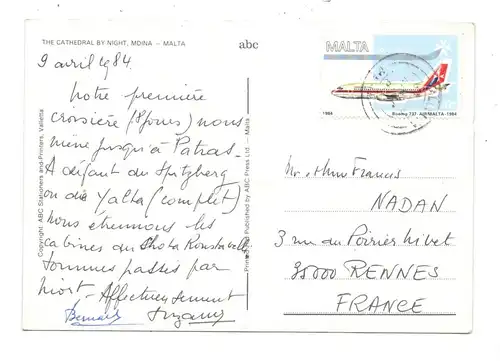 THE CATHEDRAL BY NIGHT, MDINA — MALTA
abc
9 avril 1984.
Notre première
croisière (8 jours) nous
mène jusqu'à Patras.
A défaut du Spitzberg
ou de Yalta (complet)
nous étrennons les
cabines du Shota
Sommes passés par
Niort - Affectueusement
Bernard Suzanne
Copyright: ABC Stationers and Printers, Valletta
Printed & Published by ABC Press Ltd. — Malta
MALTA
1984 Boeing 737 - AIR MALTA - 1984
Francis
NADAN
3 rue du Poirier Nivet
35000 RENNES
FRANCE